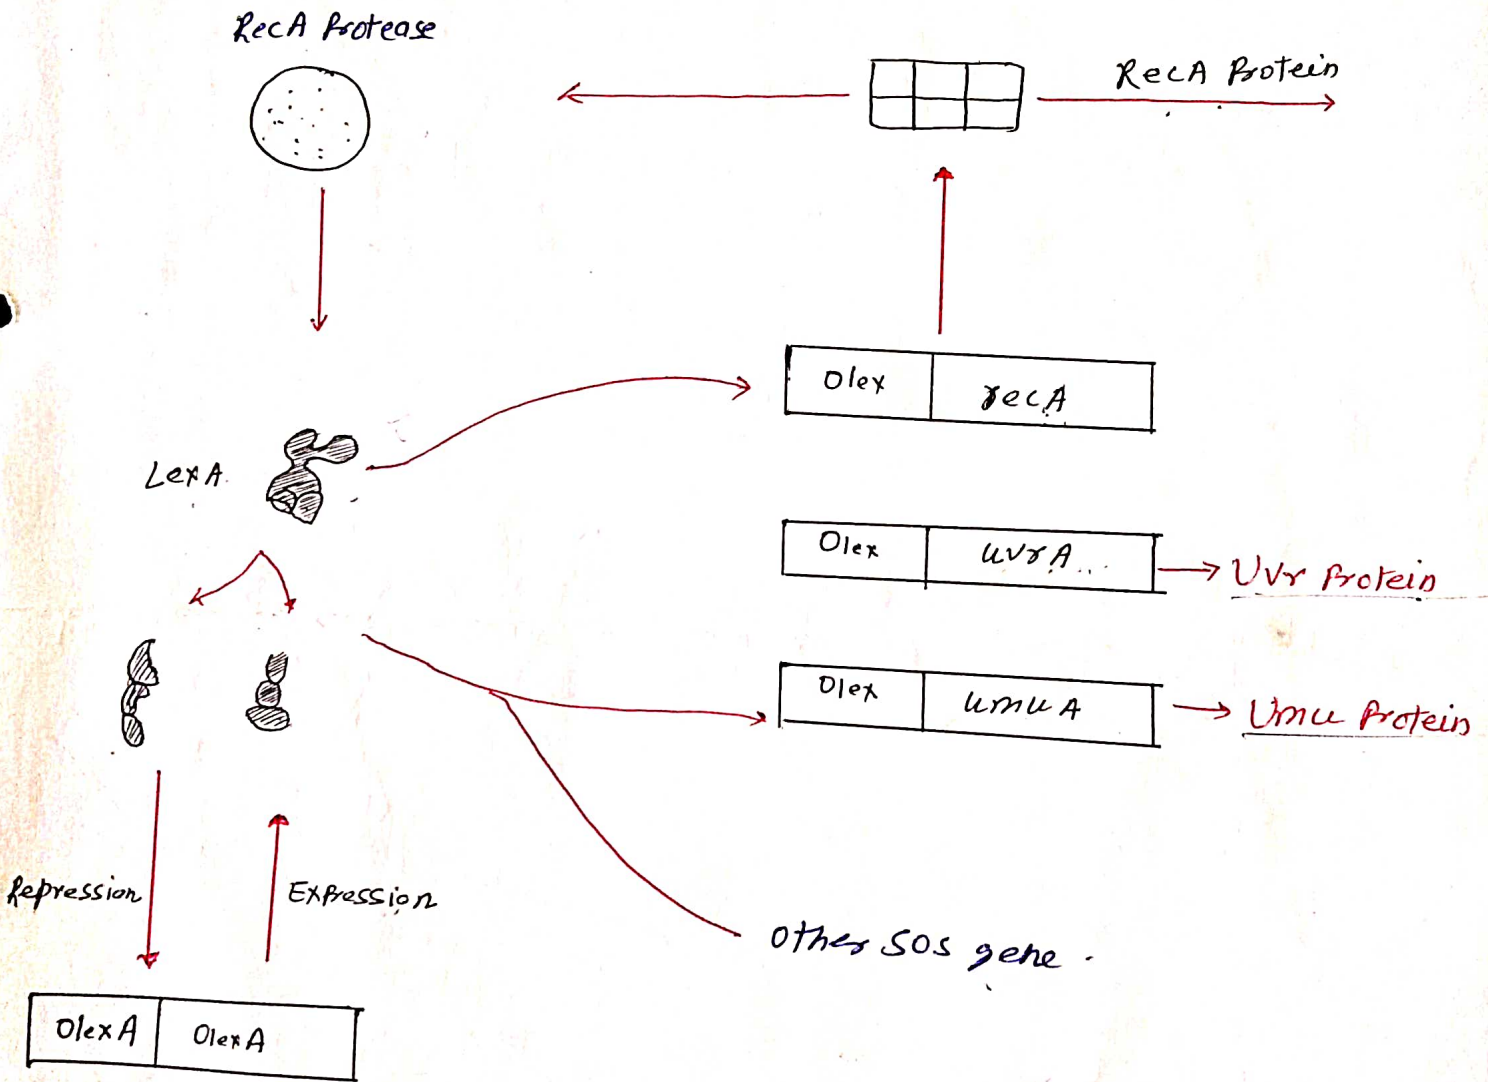 RecA Protease
RecA Protein
Olex recA
LexA
Olex uvrA
Uvr Protein
Olex umuA
Umu Protein
Repression
Expression
Other SOS gene.
OlexA OlexA